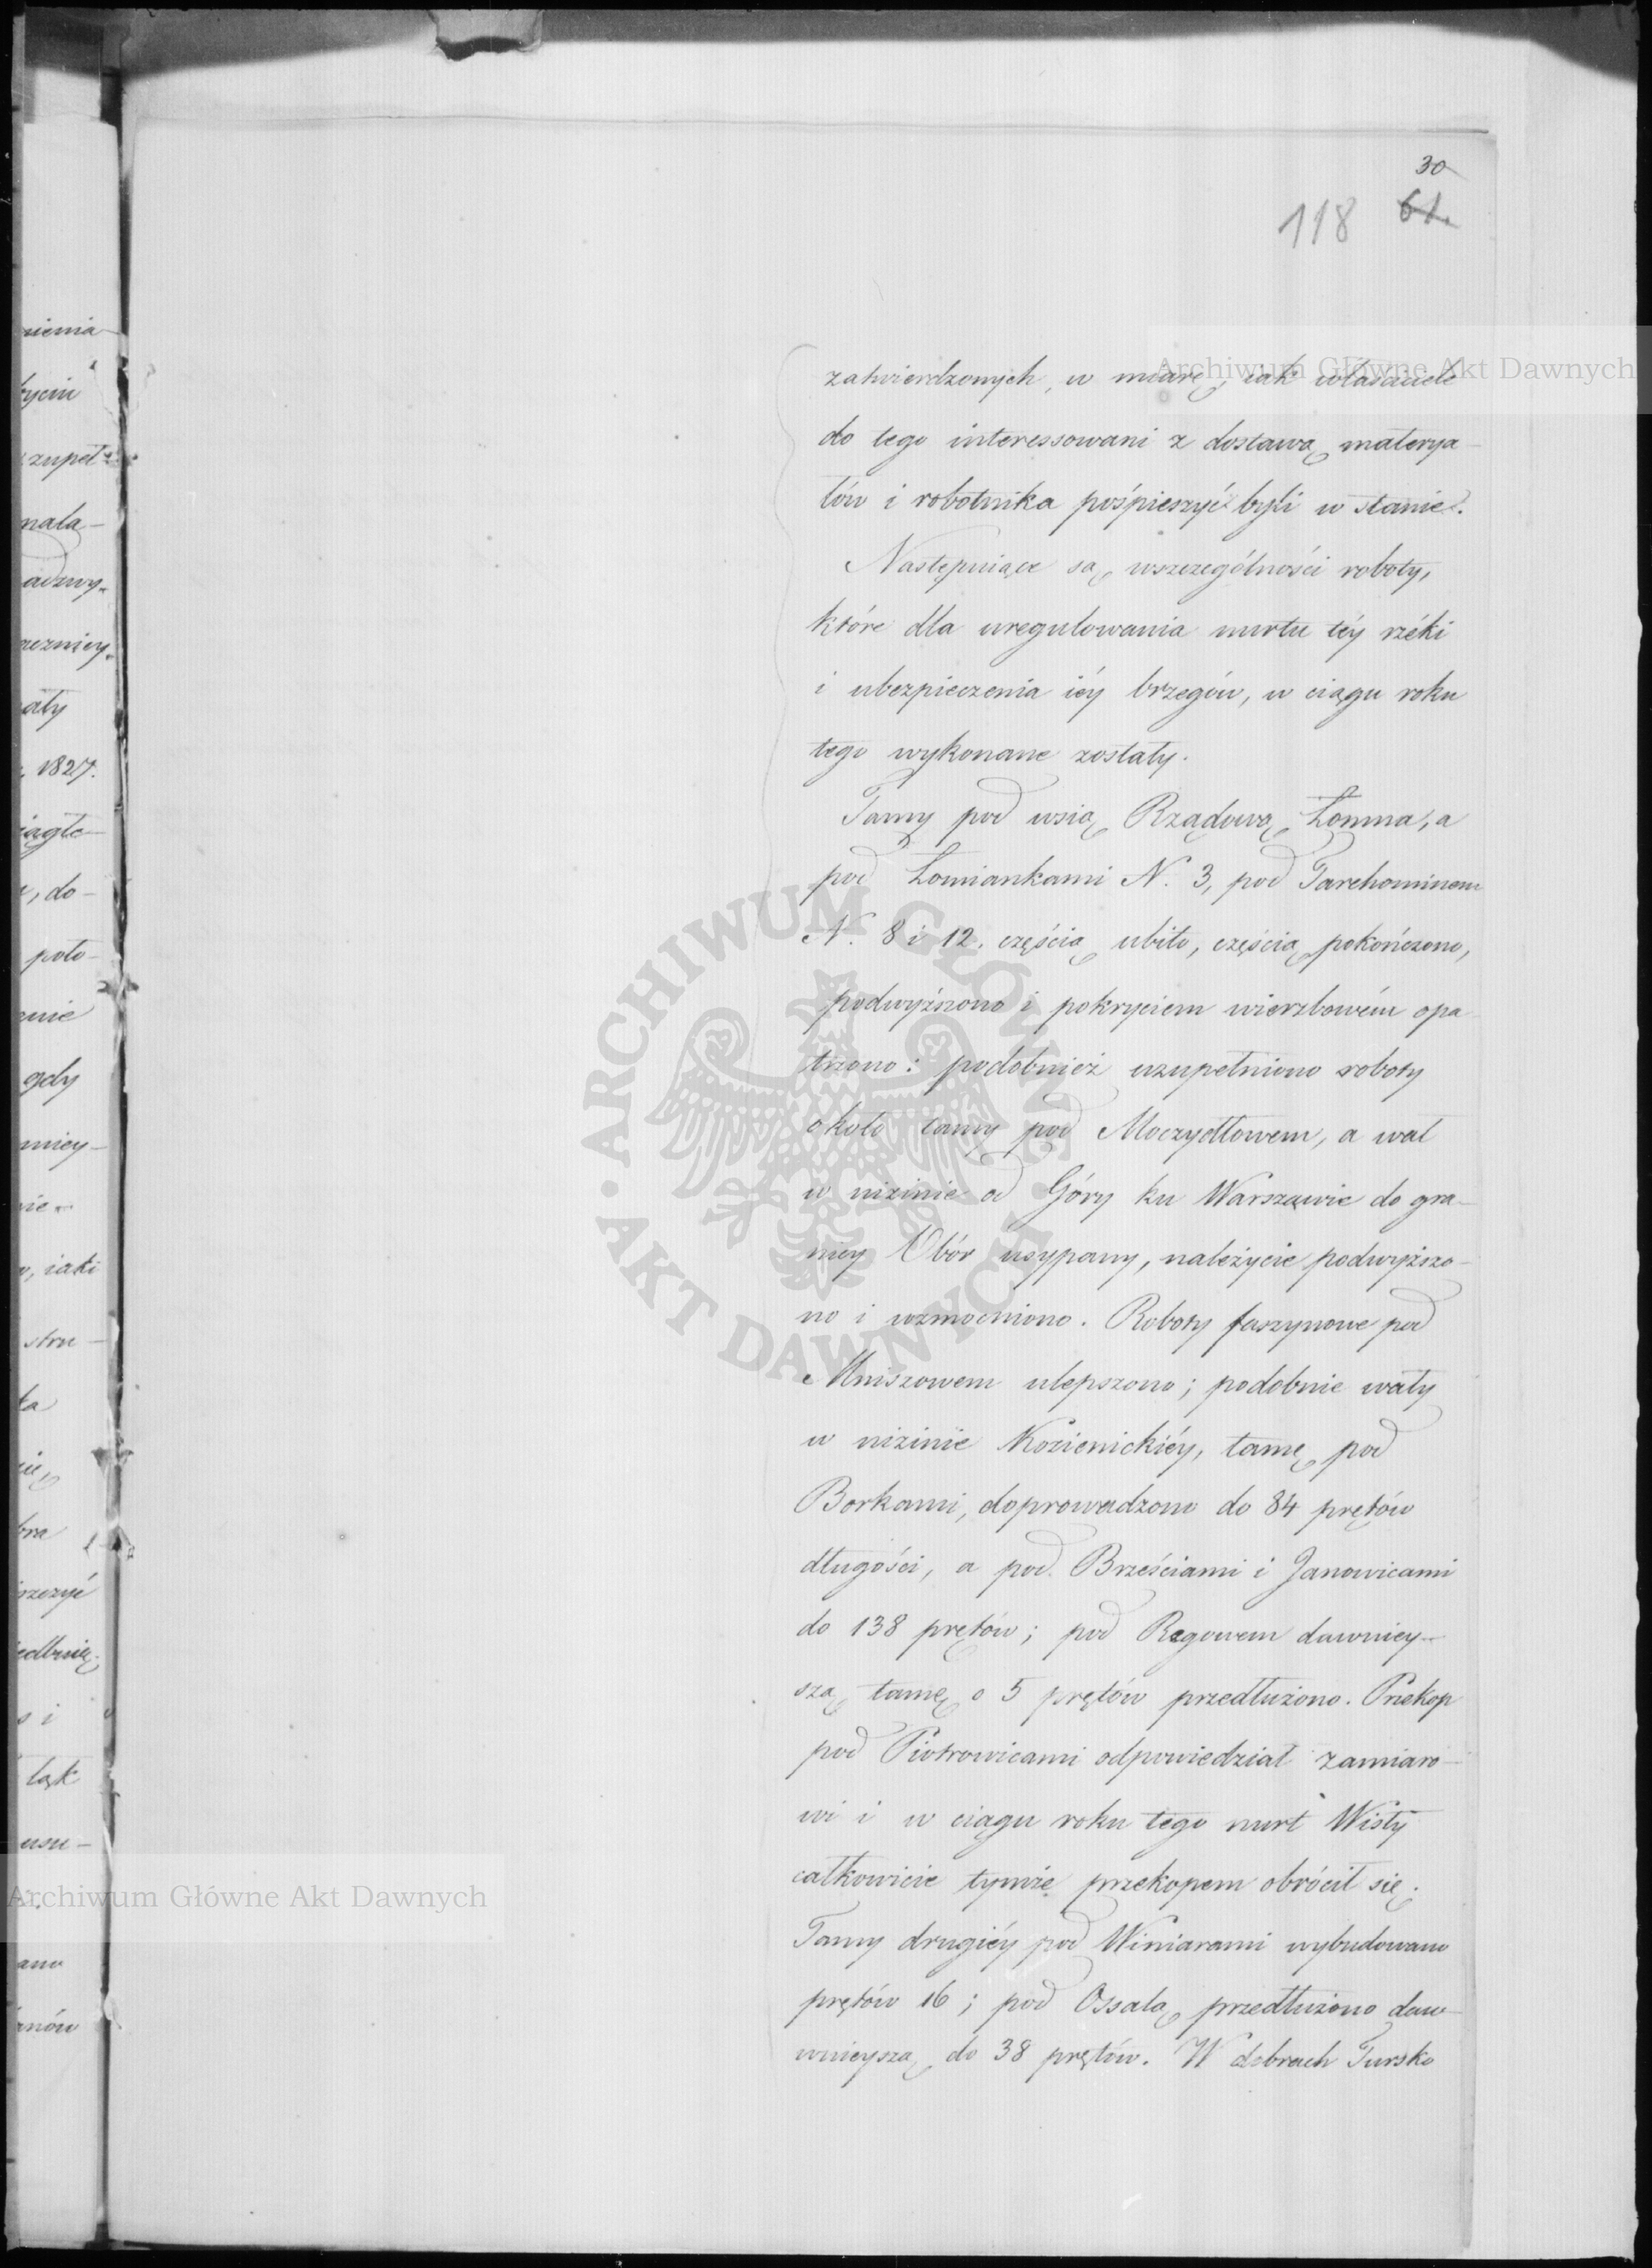 30
118 61.
zatwierdzonych, w miarę, iak właściciele
do tego interessowani z dostawą materya-
łów i robotnika pośpieszyć byli w stanie.
Następuiące są wszczególności roboty,
które dla uregulowania nurtu téy rzéki
i ubezpieczenia iéy brzegów, w ciągu roku
tego wykonane zostały.
Tamy pod wsią Rządową Łomna, a
pod Łomiankami N. 3, pod Tarchominem
N. 8 i 12. częścią ubito, częścią pokończono,
podwyższono i pokryciem wierzbowém opa-
trzono: podobnież uzupełniono roboty
około tamy pod Moczydłowem, a wał
w nizinie od Góry ku Warszawie do gra-
nicy Obór usypany, należycie podwyższo-
no i wzmocniono. Roboty faszynowe pod
Mniszowem ulepszono; podobnie wały
w nizinie Kozienickiéy, tamę pod
Borkami, doprowadzono do 84 prętów
długości, a pod Brześciami i Janowicami
do 138 prętów; pod Regowem dawniey-
szą tamę o 5 prętów przedłużono. Przekop
pod Piotrowicami odpowiedział zamiaro-
wi i w ciągu roku tego nurt Wisły
całkowicie tymże przekopem obrócił się.
Tamy drugiéy pod Winiarami wybudowano
prętów 16; pod Ossalą przedłużono daw-
wnieyszą do 38 prętów. W dobrach Tursko
nienia
byciu
zupeł-
nalą-
adzwy-
rzeżniey-
ały
1827.
iągłe-
, do-
poło-
enie
gdy
mniey-
nie-
w, iaki
stru-
ła
się,
bra
rzezyć
iedbnie,
s i
łąk
usu-
ano
anów
Archiwum Główne Akt Dawnych
ARCHIWUM GŁÓWNE AKT DAWNYCH
Archiwum Główne Akt Dawnych